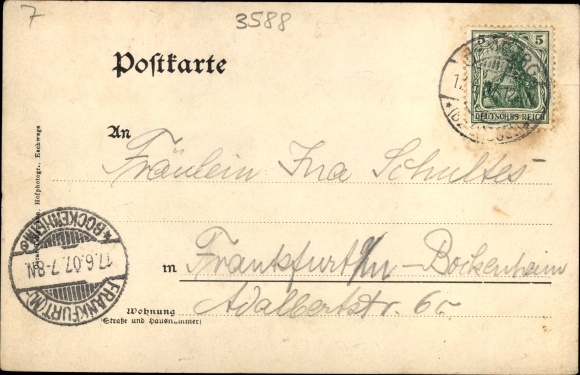 7
3588
Postkarte
5 5
DEUTSCHES REICH
An
Fräulein Ina Schultes
in Frankfurt a/M - Bockenheim
Adalbertstr. 6c
Wohnung
(Straße und Hausnummer)
FRANKFURT (MAIN)
17.6.07.7-8N.
BOCKENHEIM
Hofphotogr., Eschwege